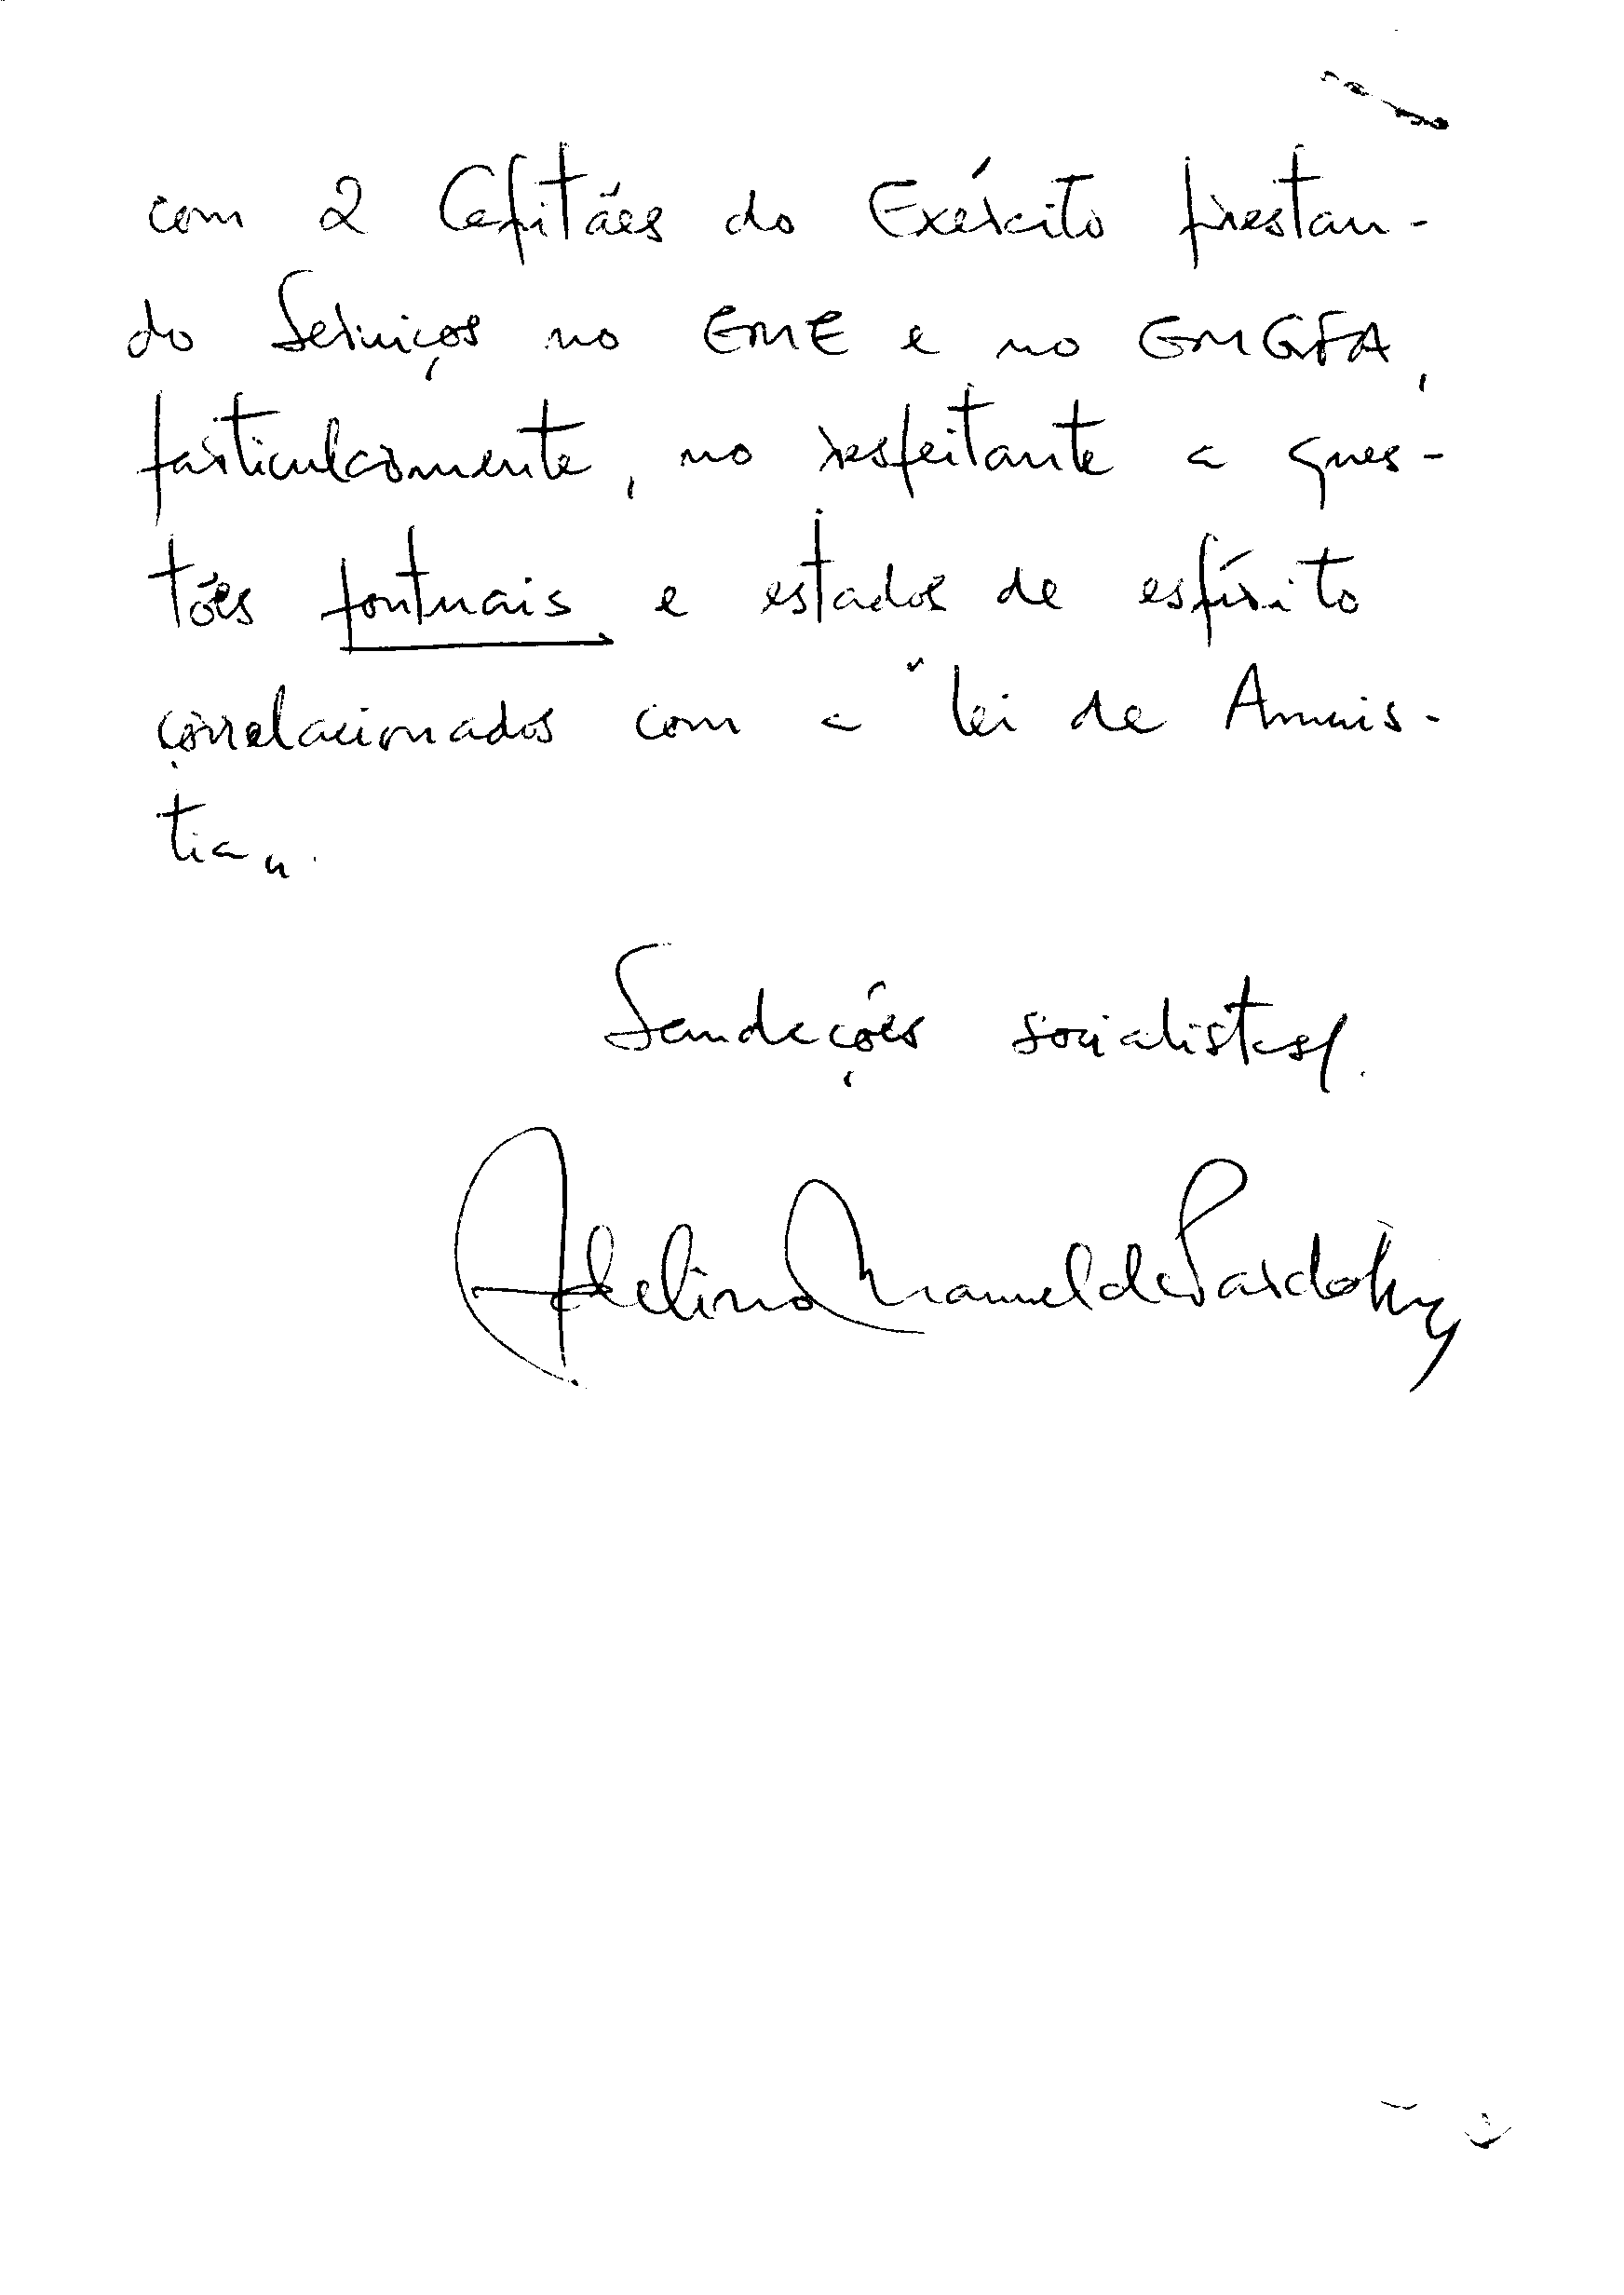 com 2 Capitães do Exército prestan-
do Serviços no EME e no EMGFA,
particularmente, no respeitante a ques-
tões pontuais e estados de espírito
correlacionados com a "lei de Amnis-
tia".
Saudações socialistas.
Adelino Manuel de